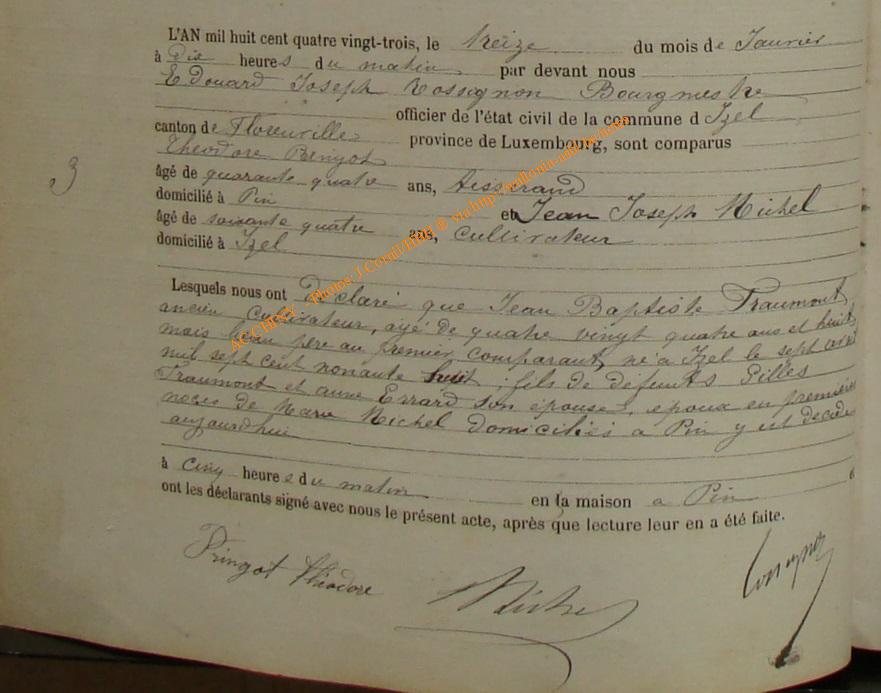 L'AN mil huit cent quatre vingt-trois, le treize du mois de Janvier
à Dix heures du matin par devant nous
Edouard Joseph Rossignon Bourgmestre
officier de l'état civil de la commune d Izel
canton de Florenville province de Luxembourg, sont comparus
Théodore Pringot
âgé de quarante quatre ans, tisserand
domicilié à Pin et Jean Joseph Michel
âgé de soixante quatre ans, cultivateur
domicilié à Izel
Lesquels nous ont déclaré que Jean Baptiste Fraumont
ancien cultivateur, agé de quatre vingt quatre ans et huit
mois beau père au premier comparant, né a Izel le sept
mil sept cent nonante huit ; fils de défunts Gilles
Fraumont et anne Errard son épouse, époux en premières
noces de Marie Michel domiciliés a Pin y est décédé
aujourdhui
à cinq heures du matin en la maison a Pin
ont les déclarants signé avec nous le présent acte, après que lecture leur en a été faite.
Pringot théodore
Michel
3
ACCHINY - Photos J Cornil/Hifi ® via http://